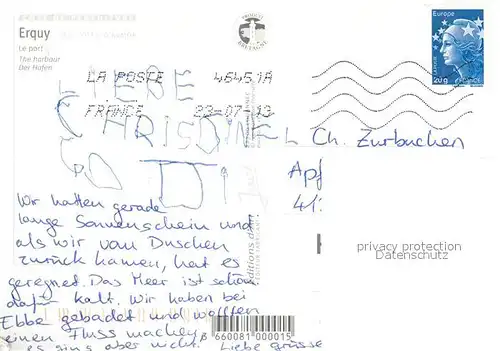 Erquy
Le port
The harbour
Der Hafen
PRODUIT EN BRETAGNE
Europe
20g FRANCE
LA POSTE 46451A
FRANCE 23-07-13
LIEBE
CHRISDINEL
DI
Wir hatten gerade
lange Sonnenschein und
als wir vom Duschen
zurück kamen, hat es
geregnet. Das Meer ist schön
dafür kalt. Wir haben bei
Ebbe gebadet und wollten
einen Fluss machen,
es ging aber nicht. Liebe Grüsse
Ch. Zurbuchen
Apf
41
privacy protection
Datenschutz
éditions d'art
660081 000015